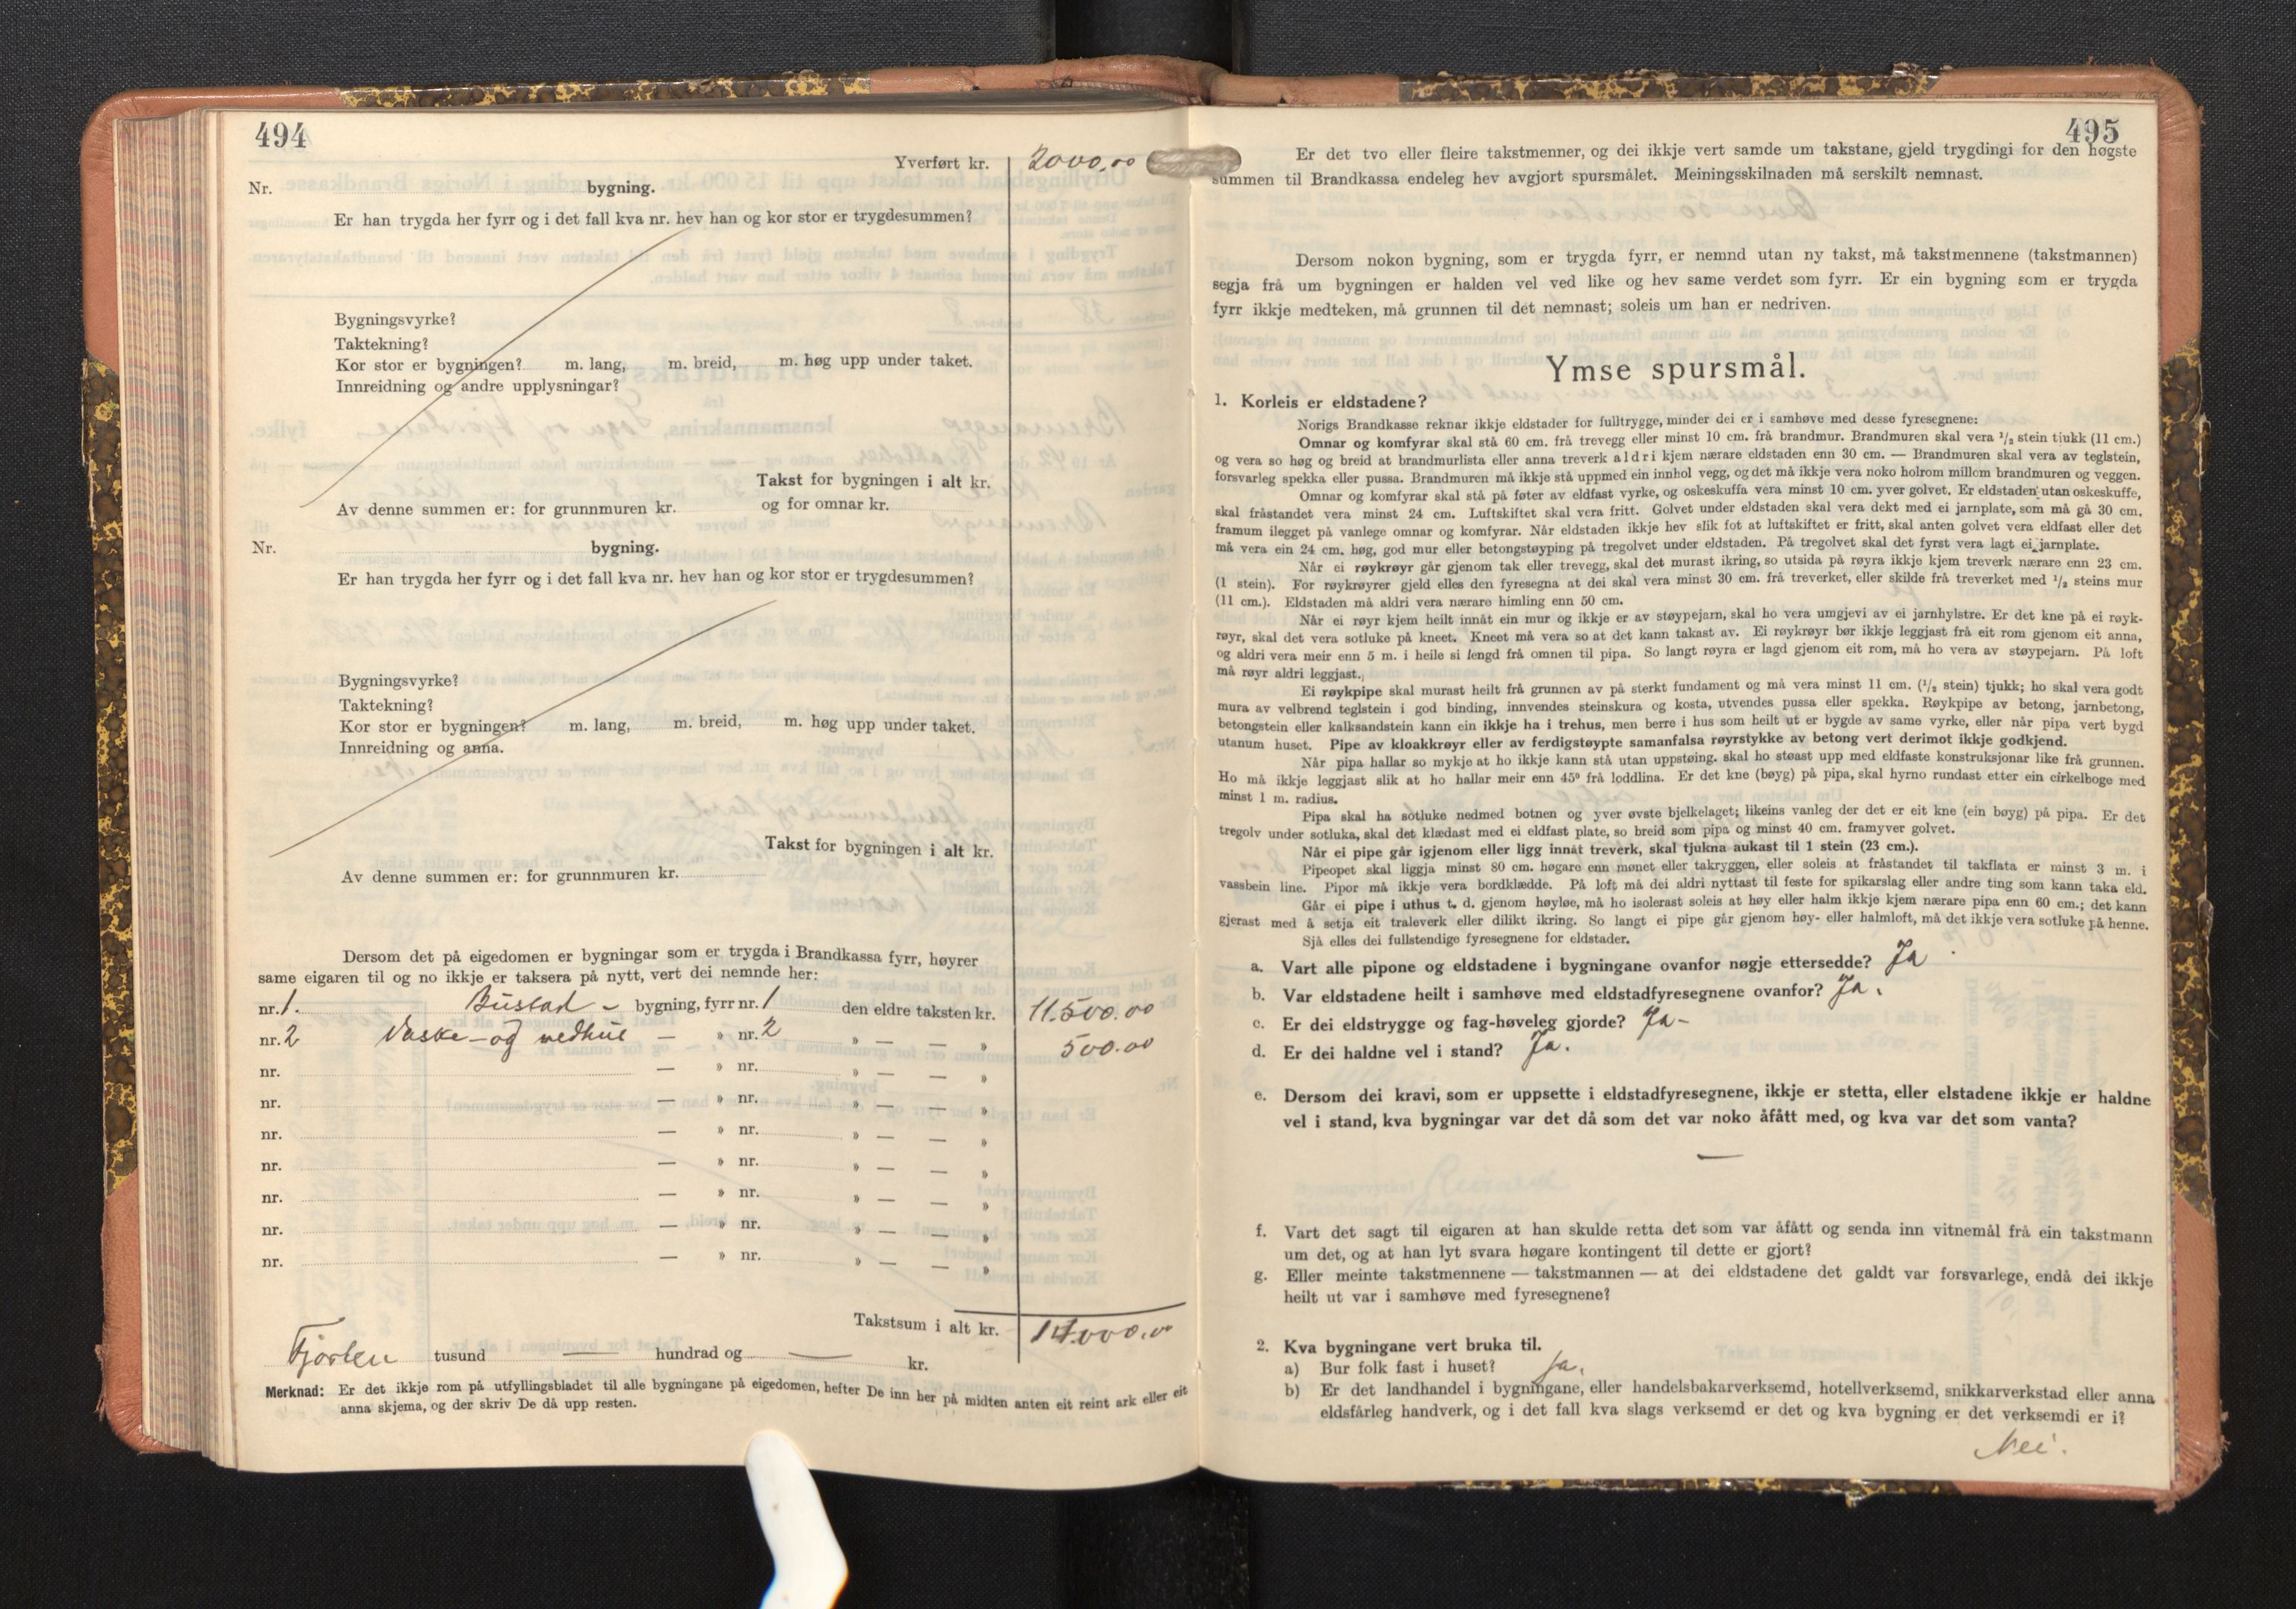 494
Yverført kr. 2000,00
Nr. bygning.
Er han trygda her fyrr og i det fall kva nr. hev han og kor stor er trygdesummen?
Bygningsvyrke?
Taktekning?
Kor stor er bygningen? m. lang, m. breid, m. høg upp under taket.
Innreidning og andre upplysningar?
Takst for bygningen i alt kr.
Av denne summen er: for grunnmuren kr. og for omnar kr.
Nr. bygning.
Er han trygda her fyrr og i det fall kva nr. hev han og kor stor er trygdesummen?
Bygningsvyrke?
Taktekning?
Kor stor er bygningen? m. lang, m. breid, m. høg upp under taket.
Innreidning og anna.
Takst for bygningen i alt kr.
Av denne summen er: for grunnmuren kr.
Dersom det på eigedomen er bygningar som er trygda i Brandkassa fyrr, høyrer
same eigaren til og no ikkje er taksera på nytt, vert dei nemnde her:
nr. 1. Bustad – bygning, fyrr nr. 1 den eldre taksten kr. 11.500.00
nr. 2 Vaske- og vedhus — » nr. 2 » — — » 500.00
nr. — » nr. » — — »
nr. — » nr. » — — »
nr. — » nr. » — — »
nr. — » nr. » — — »
nr. — » nr. » — — »
nr. — » nr. » — — »
nr. — » nr. » — — »
Takstsum i alt kr. 14.000.00
Fjorten tusund — hundrad og — kr.
Merknad: Er det ikkje rom på utfyllingsbladet til alle bygningane på eigedomen, hefter De inn her på midten anten eit reint ark eller eit
anna skjema, og der skriv De då upp resten.
495
Er det tvo eller fleire takstmenner, og dei ikkje vert samde um takstane, gjeld trygdingi for den høgste
summen til Brandkassa endeleg hev avgjort spursmålet. Meiningsskilnaden må serskilt nemnast.
Dersom nokon bygning, som er trygda fyrr, er nemnd utan ny takst, må takstmennene (takstmannen)
segja frå um bygningen er halden vel ved like og hev same verdet som fyrr. Er ein bygning som er trygda
fyrr ikkje medteken, må grunnen til det nemnast; soleis um han er nedriven.
Ymse spursmål.
1. Korleis er eldstadene?
Norigs Brandkasse reknar ikkje eldstader for fulltrygge, minder dei er i samhøve med desse fyresegnene:
Omnar og komfyrar skal stå 60 cm. frå trevegg eller minst 10 cm. frå brandmur. Brandmuren skal vera 1/2 stein tjukk (11 cm.)
og vera so høg og breid at brandmurlista eller anna treverk aldri kjem nærare eldstaden enn 30 cm. — Brandmuren skal vera av teglstein,
forsvarleg spekka eller pussa. Brandmuren må ikkje stå uppmed ein innhol vegg, og det må ikkje vera noko holrom millom brandmuren og veggen.
Omnar og komfyrar skal stå på føter av eldfast vyrke, og oskeskuffa vera minst 10 cm. yver golvet. Er eldstaden utan oskeskuffe,
skal fråstandet vera minst 24 cm. Luftskiftet skal vera fritt. Golvet under eldstaden skal vera dekt med ei jarnplate, som må gå 30 cm.
framum ilegget på vanlege omnar og komfyrar. Når eldstaden ikkje hev slik fot at luftskiftet er fritt, skal anten golvet vera eldfast eller det
må vera ein 24 cm. høg, god mur eller betongstøyping på tregolvet under eldstaden. På tregolvet skal det fyrst vera lagt ei jarnplate.
Når ei røykrøyr går gjenom tak eller trevegg, skal det murast ikring, so utsida på røyra ikkje kjem treverk nærare enn 23 cm.
(1 stein). For røykrøyrer gjeld elles den fyresegna at dei skal vera minst 30 cm. frå treverket, eller skilde frå treverket med 1/2 steins mur
(11 cm.). Eldstaden må aldri vera nærare himling enn 50 cm.
Når ei røyr kjem heilt innåt ein mur og ikkje er av støypejarn, skal ho vera umgjevi av ei jarnhylstre. Er det kne på ei røyk-
røyr, skal det vera sotluke på kneet. Kneet må vera so at det kann takast av. Ei røykrøyr bør ikkje leggjast frå eit rom gjenom eit anna,
og aldri vera meir enn 5 m. i heile si lengd frå omnen til pipa. So langt røyra er lagd gjenom eit rom, må ho vera av støypejarn. På loft
må røyr aldri leggjast.
Ei røykpipe skal murast heilt frå grunnen av på sterkt fundament og må vera minst 11 cm. (1/2 stein) tjukk; ho skal vera godt
mura av velbrend teglstein i god binding, innvendes steinskura og kosta, utvendes pussa eller spekka. Røykpipe av betong, jarnbetong,
betongstein eller kalksandstein kann ein ikkje ha i trehus, men berre i hus som heilt ut er bygde av same vyrke, eller når pipa vert bygd
utanum huset. Pipe av kloakkrøyr eller av ferdigstøypte samanfalsa røyrstykke av betong vert derimot ikkje godkjend.
Når pipa hallar so mykje at ho ikkje kann stå utan uppstøing. skal ho støast upp med eldfaste konstruksjonar like frå grunnen.
Ho må ikkje leggjast slik at ho hallar meir enn 45° frå loddlina. Er det kne (bøyg) på pipa, skal hyrno rundast etter ein cirkelboge med
minst 1 m. radius.
Pipa skal ha sotluke nedmed botnen og yver øvste bjelkelaget; likeins vanleg der det er eit kne (ein bøyg) på pipa. Er det
tregolv under sotluka, skal det klædast med ei eldfast plate, so breid som pipa og minst 40 cm. framyver golvet.
Når ei pipe går igjenom eller ligg innåt treverk, skal tjukna aukast til 1 stein (23 cm.).
Pipeopet skal liggja minst 80 cm. høgare enn mønet eller takryggen, eller soleis at fråstandet til takflata er minst 3 m. i
vassbein line. Pipor må ikkje vera bordklædde. På loft må dei aldri nyttast til feste for spikarslag eller andre ting som kann taka eld.
Går ei pipe i uthus t. d. gjenom høyløe, må ho isolerast soleis at høy eller halm ikkje kjem nærare pipa enn 60 cm.; det kann
gjerast med å setja eit traleverk eller dilikt ikring. So langt ei pipe går gjenom høy- eller halmloft, må det ikkje vera sotluke på henne.
Sjå elles dei fullstendige fyresegnene for eldstader.
a. Vart alle pipone og eldstadene i bygningane ovanfor nøgje ettersedde? Ja
b. Var eldstadene heilt i samhøve med eldstadfyresegnene ovanfor? Ja.
c. Er dei eldstrygge og fag-høveleg gjorde? Ja–
d. Er dei haldne vel i stand? Ja.
e. Dersom dei kravi, som er uppsette i eldstadfyresegnene, ikkje er stetta, eller elstadene ikkje er haldne
vel i stand, kva bygningar var det då som det var noko åfått med, og kva var det som vanta?
—
f. Vart det sagt til eigaren at han skulde retta det som var åfått og senda inn vitnemål frå ein takstmann
um det, og at han lyt svara høgare kontingent til dette er gjort?
g. Eller meinte takstmennene — takstmannen — at dei eldstadene det galdt var forsvarlege, endå dei ikkje
heilt ut var i samhøve med fyresegnene?
2. Kva bygningane vert bruka til.
a) Bur folk fast i huset? Ja.
b) Er det landhandel i bygningane, eller handelsbakarverksemd, hotellverksemd, snikkarverkstad eller anna
eldsfårleg handverk, og i det fall kva slags verksemd er det og kva bygning er det verksemdi er i?
Nei.